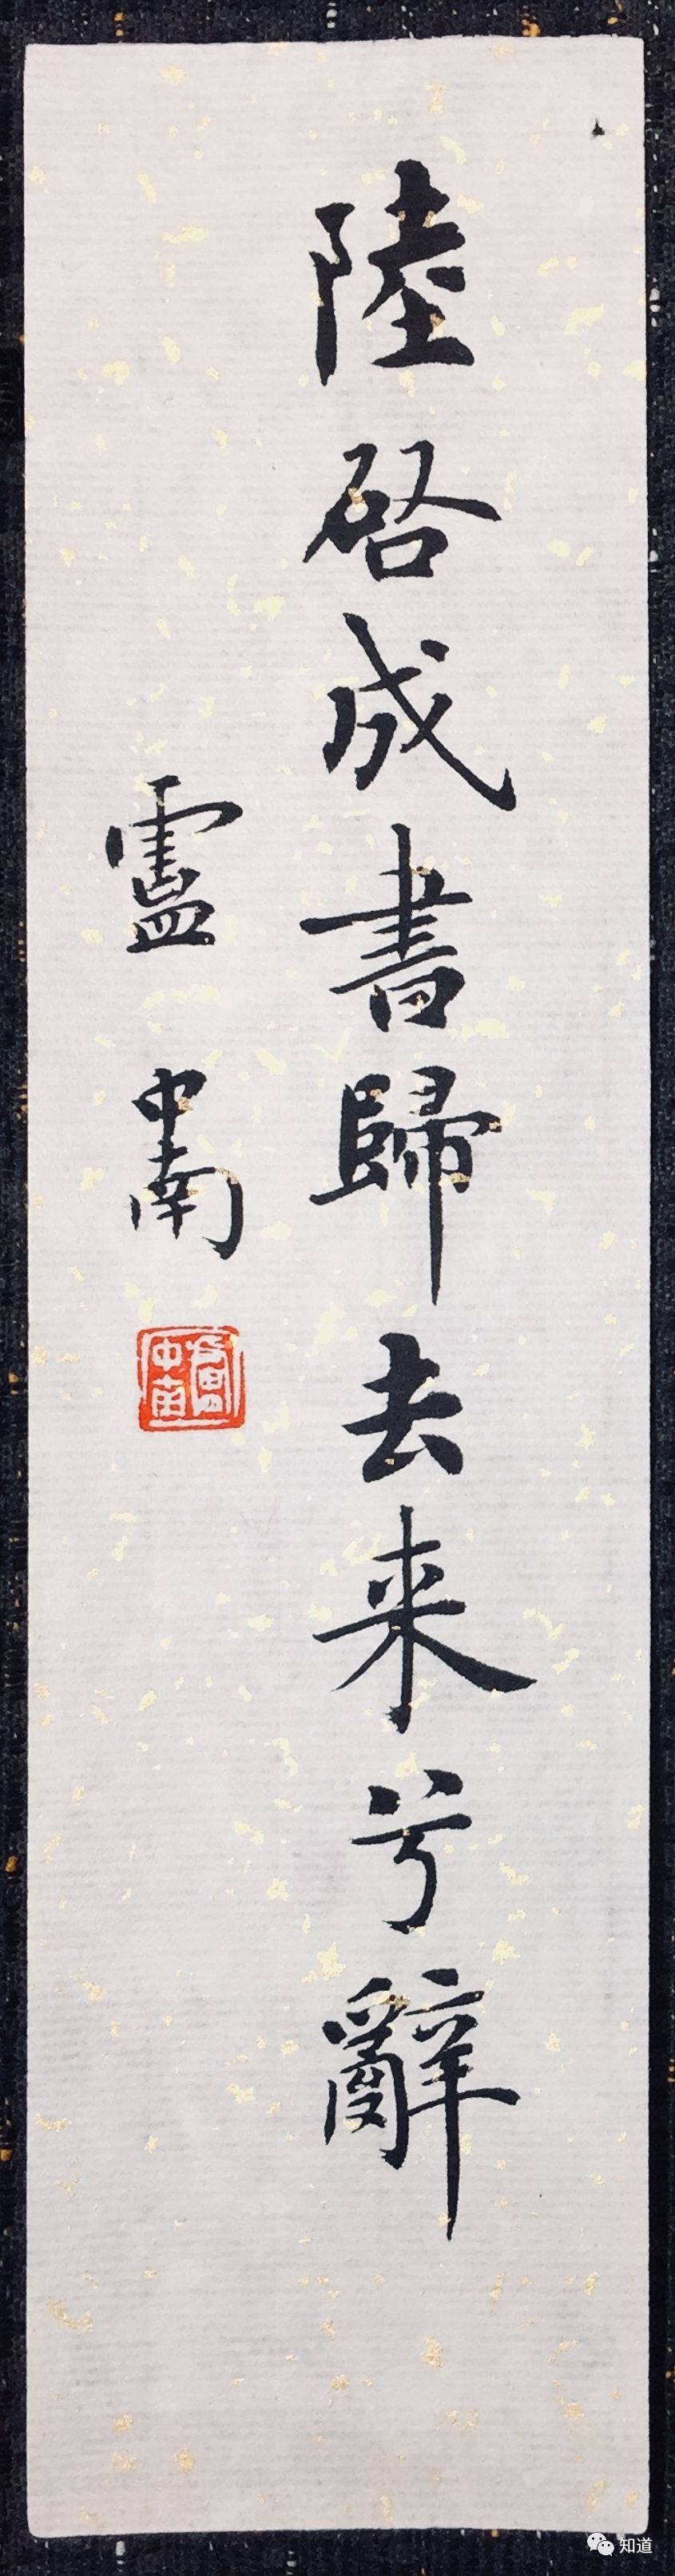 陸啓成書歸去来兮辭
盧中南
盧中南
知道